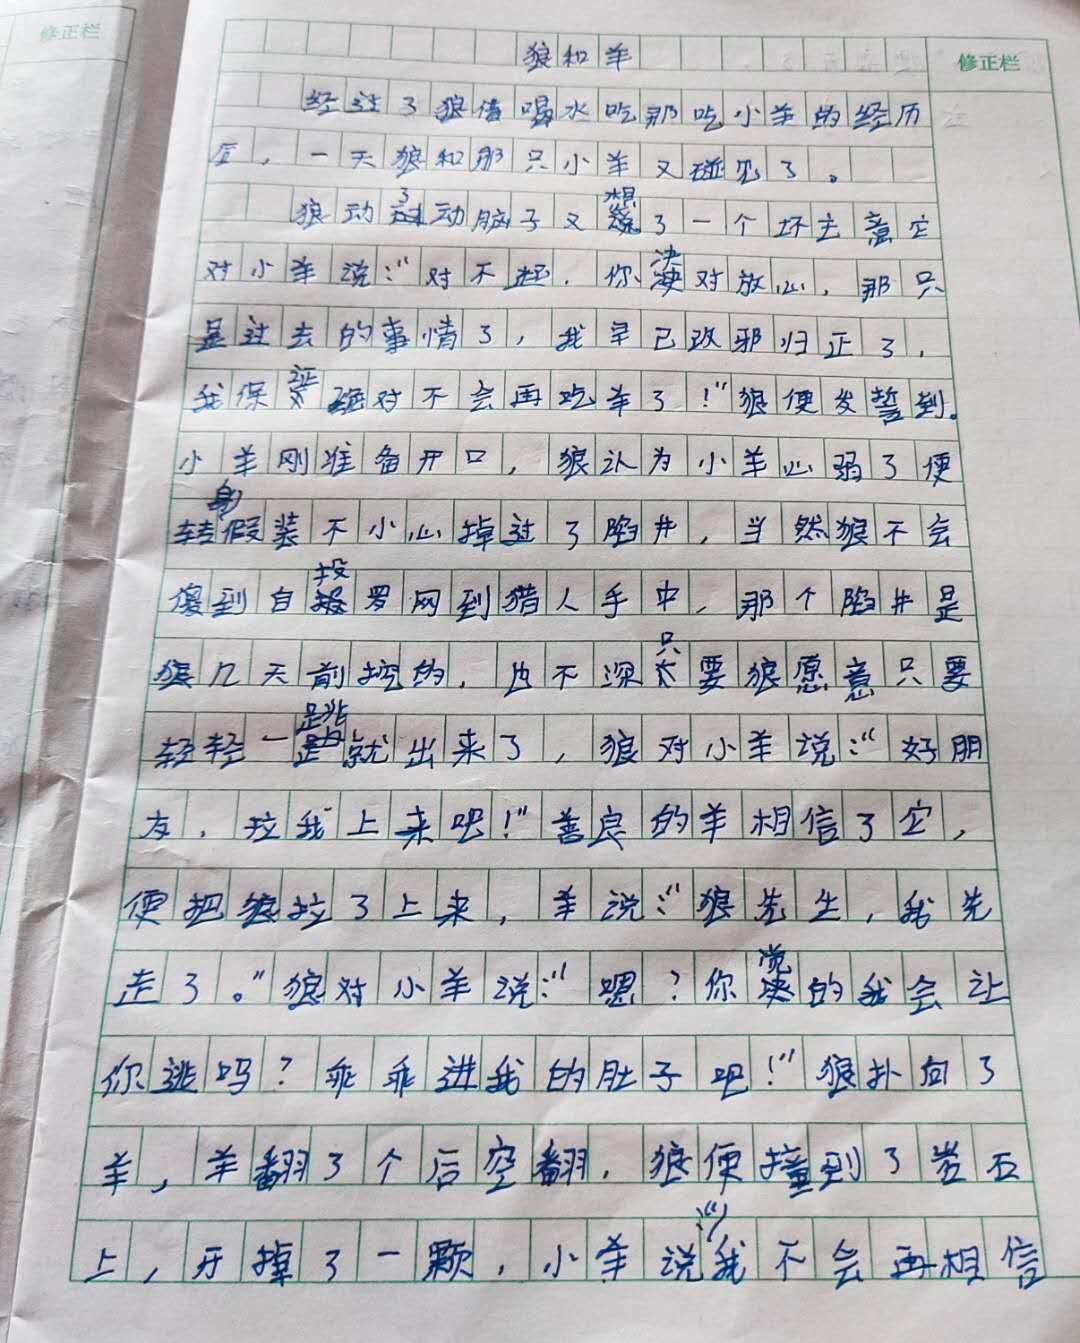 修正栏
修正栏
狼和羊
经过了狼借喝水吃那吃小羊的经历
后，一天狼和那只小羊又碰见了。
狼动了动脑子又想了一个坏主意它
对小羊说：“对不起，你决对放心，那只
是过去的事情了，我早已改邪归正了，
我保证绝对不会再吃羊了！”狼便发誓到。
小羊刚准备开口，狼认为小羊心弱了便
转身假装不小心掉过了陷井，当然狼不会
傻到自投罗网到猎人手中，那个陷井是
狼几天前挖的，也不深只要狼愿意只要
轻轻一跳就出来了，狼对小羊说：“好朋
友，拉我上来吧！”善良的羊相信了它，
便把狼拉了上来，羊说：“狼先生，我先
走了。”狼对小羊说：“嗯？你觉的我会让
你逃吗？乖乖进我的肚子吧！”狼扑向了
羊，羊翻了个后空翻，狼便撞到了岩石
上，牙掉了一颗，小羊说：“我不会再相信